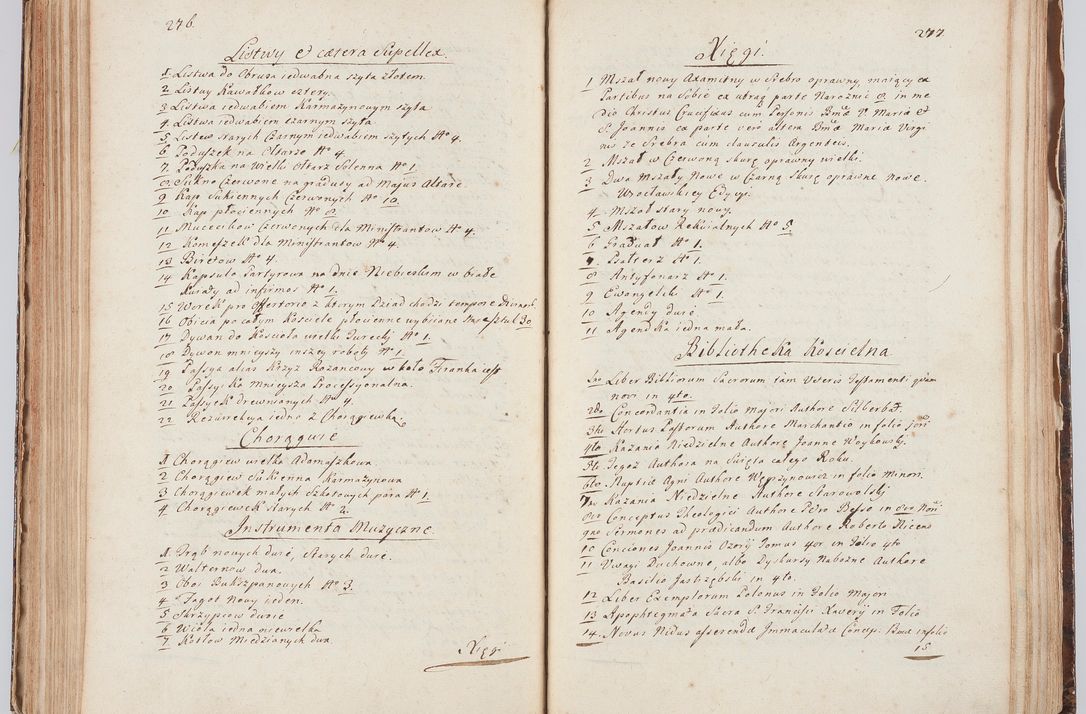 276.
Listwy et cætera Supellex.
1 Listwa do Obrusa iedwabna szyta złotem.
2 Listwy Kawałków cztery.
3 Listwa iedwabiem Karmazynowym szyta
4 Listwa iedwabiem czarnym szyta
5 Listew starych Czarnym iedwabiem szytych No 4.
6 Poduszek na Ołtarze No 4.
7. Poduszka na Wielki Ołtarz Solenna No 1.
8 Sukno Czerwone na gradusy ad Majus Altare.
9 Kap Sukiennych Czerwonych No 10.
10 Kap płociennych No 8.
11 Mucecików Czerwonych dla Ministrantow No 4.
12 Komeszek dla Ministrantow No 4.
13 Biretow No 4.
14 Kapsula Partyrowa na dnie Niebieskim w białe
Kwiaty ad infirmos No 1.
15 Worek pro Offertorio z którym Dziad chodzi tempore
16 Obicia po całym Kościele płócienne wybiiane 30
17 Dywan do Kościoła wielki Turecki No 1.
18 Dywan mnieyszy inszey roboty No 1.
19 Passya alias Krzyż Rożancowy w koło
20 Passyika Mnieysza Processyonalna.
21 Passyiek drewnianych No 4.
22 Rezurrekcya iedna z Chorągiewką.
Chorągwie
1 Chorągiew wielka Adamaszkowa.
2 Chorągiew Sukienna Karmazynowa
3 Chorągiewek małych szkotowych para No 1.
4 Chorągiewek starych No 2.
Instrumenta Muzyczne.
1 Trąb nowych dwie, Starych dwie.
2 Walternow dwa.
3 Oboi Bukszpanowych No 3.
4 Fagot Nowy ieden.
5 Skrzypcow dwoie
6 Wiola iedna niewielka
7 Kotłow Miedzianych dwa.
Xięgi
277.
Xięgi.
1 Mszał nowy Axamitny w Srebro oprawny maiący ex
Partibus na Sobie ex utraq parte Narożnic 8. in me
dio Christus Crucifixus cum Personis Bmæ V. Mariæ et
S. Joannis ex parte vero altera Bma Maria Virgi
nis ze Srebra cum clausulis Argenteis.
2 Mszał w Czerwoną skurę oprawny wielki.
3 Dwa Mszały Nowe w Czarną skurę oprawne nowe.
Wrocławskiey Edycyi.
4 Mszał stary nowy.
5 Mszałow Rekwialnych No 5.
6 Graduał No 1.
7 Psałterz No 1.
8 Antyfonarz No 1.
9 Ewangeliki No 1.
10 Agendy dwie.
11 Agendka iedna mała.
Bibliotheka Koscielna
1mo Liber Bibliorum Sacrorum tam Veteris Testamenti quam
novi in 4to.
2do Concordantia in Folio Majori Authore Silberbat.
3tio Hortus Pastorum Authore Marchantio in folio
4to Kazania Niedzielne Authore Joanne Woykowsky.
5to Tegoż Authora na Swięta całego Roku.
6to Nuptiæ Agni Authore Węgrzynowicz in folio minori
7mo Kazania Niedzielne Authore Starowolski
8vo Conceptus Theologici Authore Petro Besso in 8vo
9no Sermones ad prædicandum Authore Roberto Liceno
10 Conciones Joannis Ozorij Tomus 4or in Folio 4to
11 Uwagi Duchowne, albo Dyskursy Nabożne Authore
Basilio Jastrzębski in 4to.
12 Liber Exemplorum Polonus in Folio Majori
13 Apophtegmata Sacra S. Francisci Xaverij in Folio
14. Novus Nidus asserenda Immaculata Concep. Bmæ in folio
15